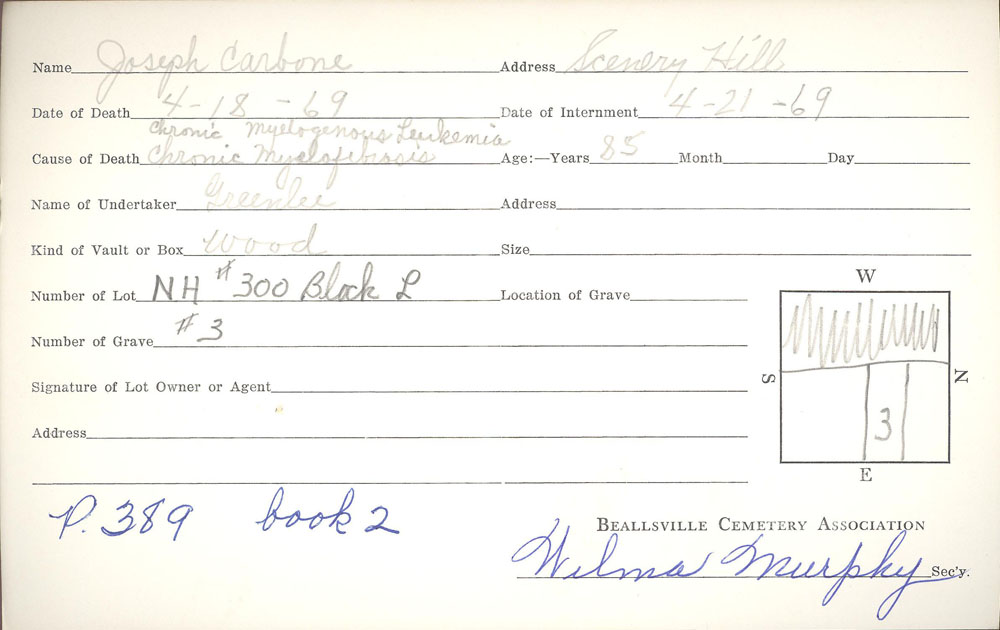 Name Joseph Carbone Address Scenery Hill
Date of Death 4-18-69 Date of Internment 4-21-69
Chronic Myelogenous Leukemia
Cause of Death Chronic Myelofibiosis Age:—Years 85 Month Day
Name of Undertaker Greenlee Address
Kind of Vault or Box Wood Size
Number of Lot NH #300 Block L Location of Grave
Number of Grave #3
Signature of Lot Owner or Agent
Address
W
S
N
3
E
P. 389 book 2
Beallsville Cemetery Association
Wilma Murphy Sec'y.